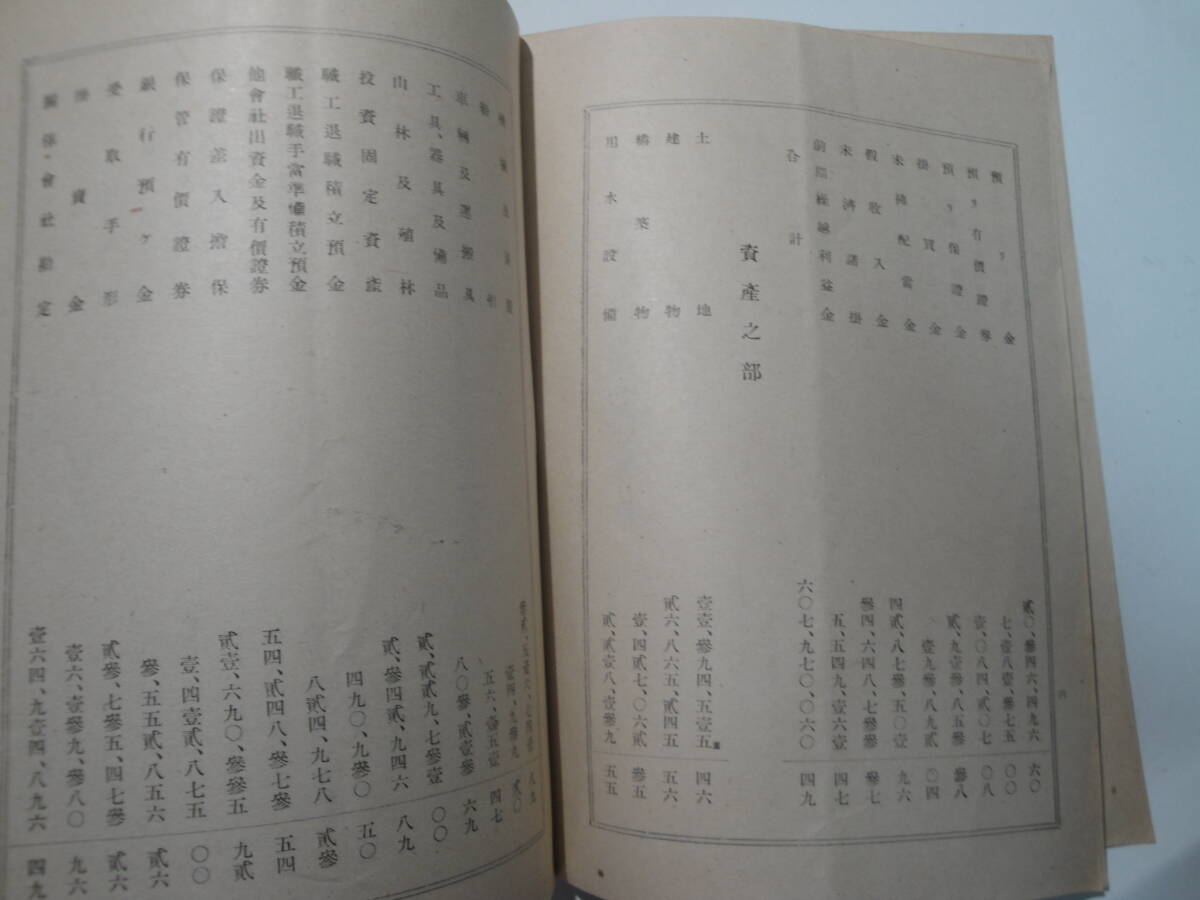 預リ金 貳〇、參四六、四九六 六〇
預リ有價證券 七、壹八壹、參七五 〇〇
預リ保證金 壹、〇八四、貳〇七 〇八
掛買金 貳、九壹參、八五參 參八
未拂配當金 壹九參、八九貳 〇四
假收入金 四貳、八七參、五〇壹 九六
未濟諸掛 參四、六四八、七參參 參七
前期繰越利益金 五、五四九、壹六壹 四七
合計 六〇七、九七〇、〇六〇 四九
資產之部
土地 壹壹、參九四、五壹五 四六
建物 貳六、八六五、貳四五 五六
構築物 壹、四貳七、〇六貳 參五
用水設備 貳、貳壹八、壹參九 五五
壹四、九參九 貳〇
車輛及運搬具 四七
工具、器具及備品 八〇參、貳壹參 六九
山林及殖林 貳、貳貳九、七參壹 〇〇
投資固定資產 貳、參四貳、九四六 八九
職工退職積立預金 四九〇、九參〇 五〇
職工退職手當準備積立預金 八貳四、九七八 貳參
他會社出資金及有價證券 五四、貳四八、參七參 五四
保證差入擔保 貳壹、六九〇、參參五 九貳
保管有價證券 壹、四壹貳、八七五 〇〇
銀行預ケ金 參、五五貳、八五六 貳六
受取手形 貳參、七參五、四七參 貳六
賣金 壹六、壹參九、參八〇 九六
關係會社勘定 壹六四、九壹四、八九六 四九